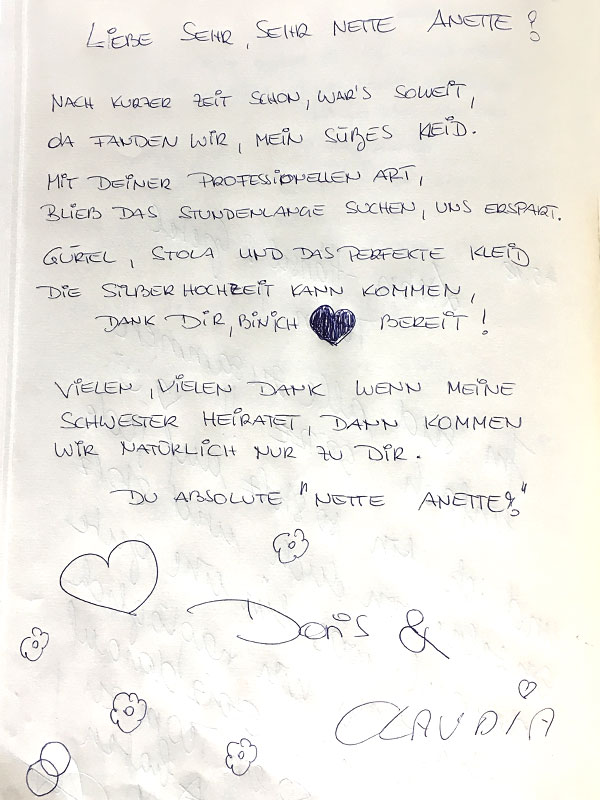 LIEBE SEHR, SEHR NETTE ANETTE!
NACH KURZER ZEIT SCHON, WAR'S SOWEIT,
DA FANDEN WIR, MEIN SÜẞES KLEID.
MIT DEINER PROFESSIONELLEN ART,
BLIEB DAS STUNDENLANGE SUCHEN, UNS ERSPART.
GÜRTEL, STOLA UND DAS PERFEKTE KLEID
DIE SILBERHOCHZEIT KANN KOMMEN,
DANK DIR, BIN ICH BEREIT!
VIELEN, VIELEN DANK WENN MEINE
SCHWESTER HEIRATET, DANN KOMMEN
WIR NATÜRLICH NUR ZU DIR.
DU ABSOLUTE "NETTE ANETTE!"
Doris &
CLAUDIA